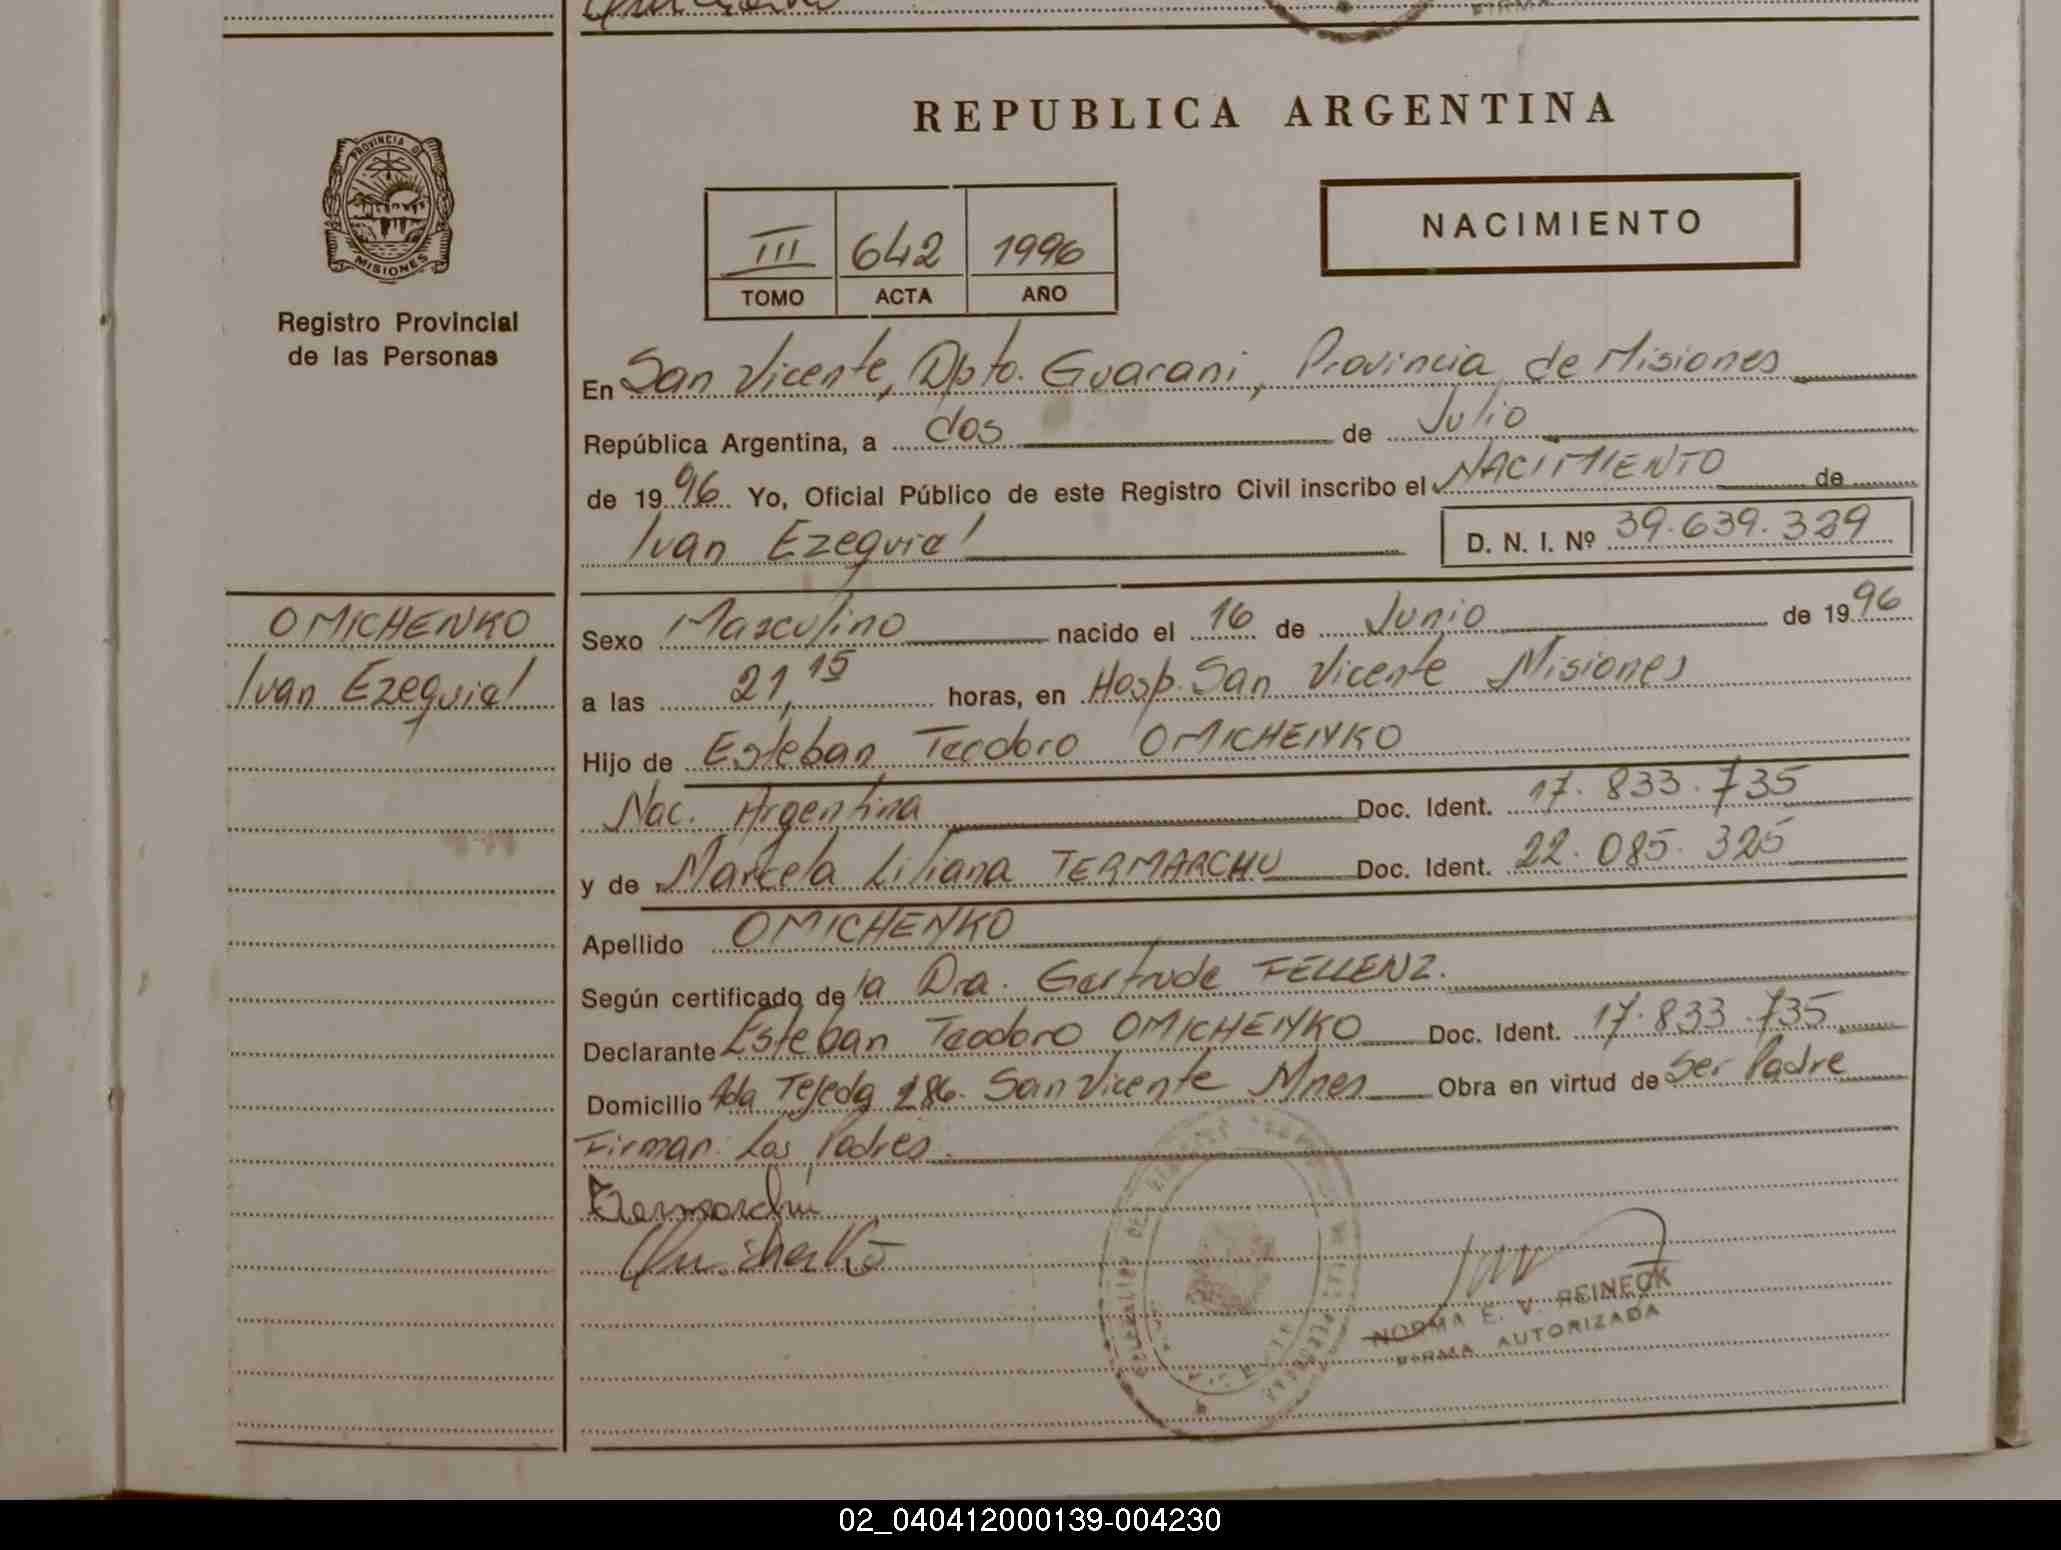 REPUBLICA ARGENTINA
PROVINCIA D
MISIONES
Registro Provincial
de las Personas
III 642 1996
TOMO ACTA AÑO
NACIMIENTO
En San Vicente, Dpto. Guarani, Provincia de Misiones
República Argentina, a dos de Julio
de 1996 Yo, Oficial Público de este Registro Civil inscribo el NACIMIENTO de
Ivan Ezequiel D. N. I. Nº 39.639.329
OMICHENKO
Ivan Ezequiel
Sexo Masculino nacido el 16 de Junio de 1996
a las 21,15 horas, en Hosp. San Vicente Misiones
Hijo de Esteban Teodoro OMICHENKO
Nac. Argentina Doc. Ident. 17.833.735
y de Marcela Liliana TERMARCHU Doc. Ident. 22.085.325
Apellido OMICHENKO
Según certificado de la Dra. Gertrude FELLENZ.
Declarante Esteban Teodoro OMICHENKO Doc. Ident. 17.833.735
Domicilio Ada Tejeda 286. San Vicente Mnes Obra en virtud de Ser Padre
Firman: Los Padres.
NORMA E. V. REINECK
FIRMA AUTORIZADA
02_040412000139-004230